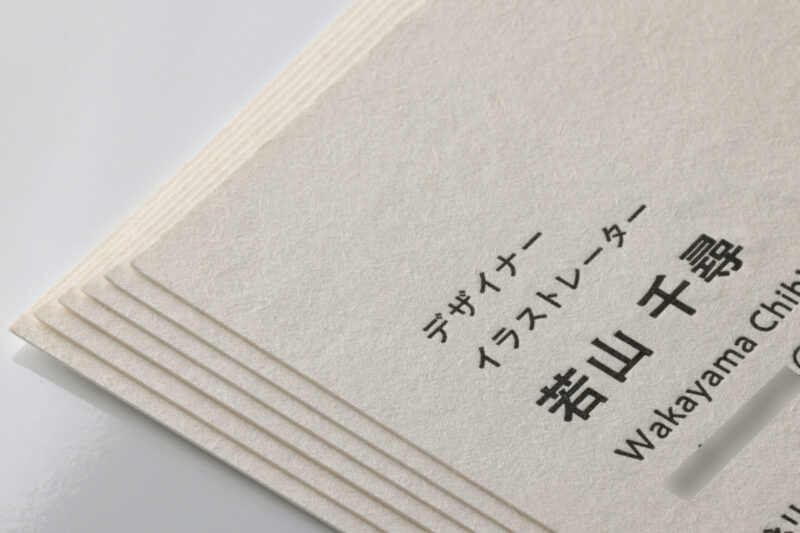 デザイナー
イラストレーター
若山 千尋
Wakayama Chih